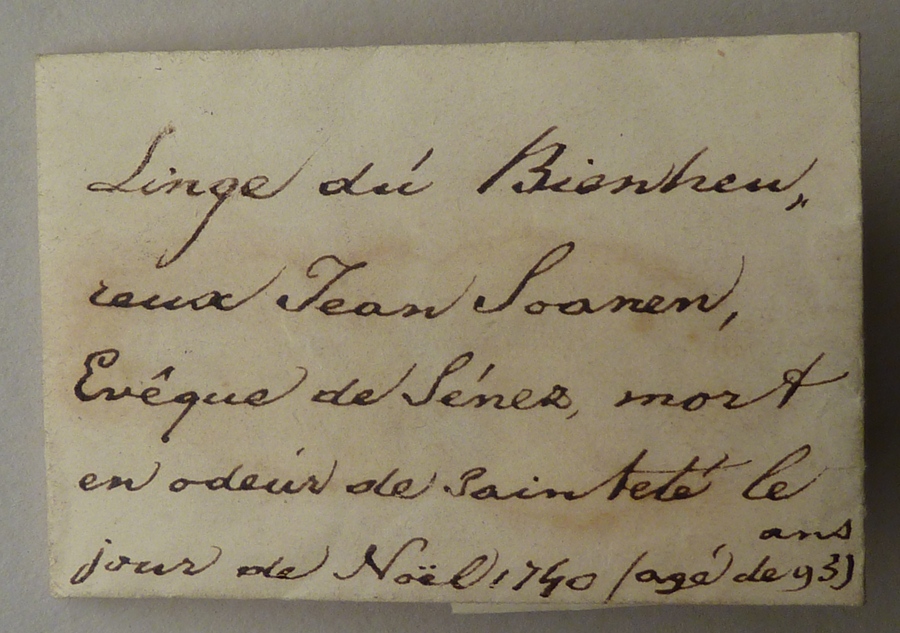 Linge dú Bienheu„
reux Jean Soanen,
Evêque de Sénez, mort
en odeúr de sainteté le
jour de Noël 1740 (agé de 93 ans)